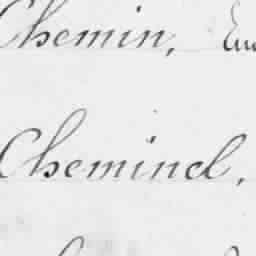 Chemin,
Cheminel,